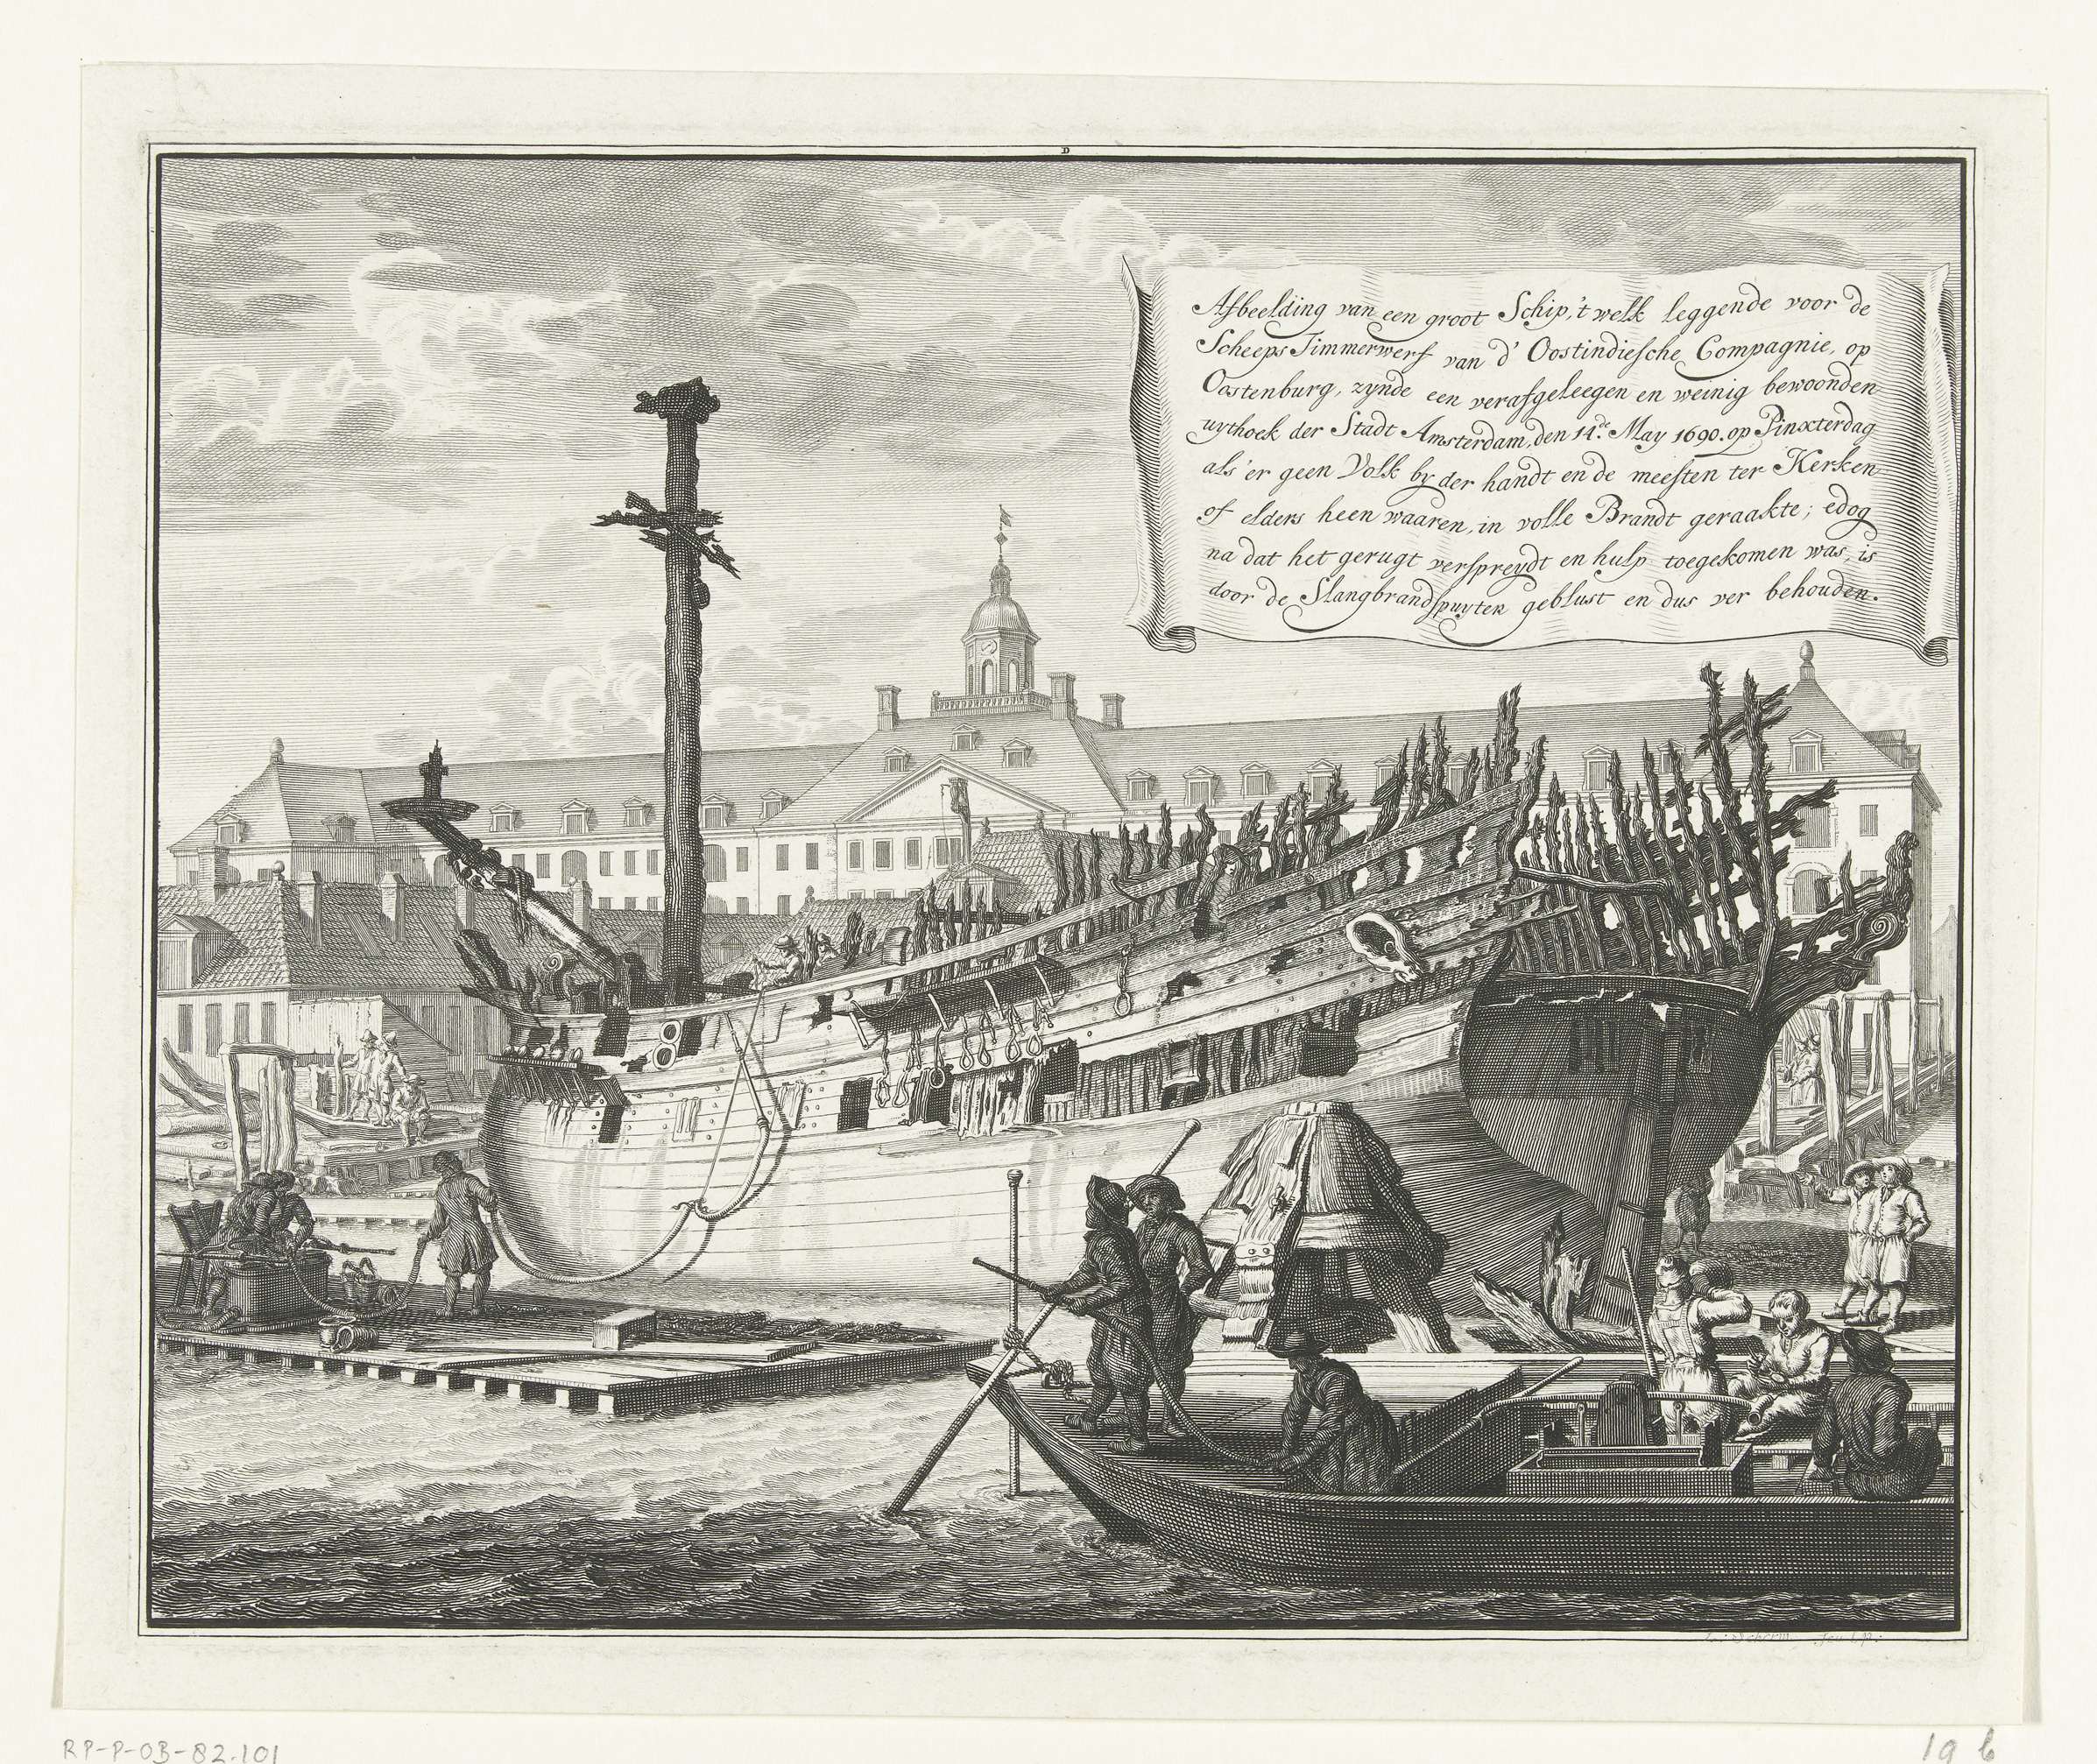 D
Afbeelding van een groot Schip, 't welk leggende voor de
Scheeps Timmerwerf van d' Oostindiesche Compagnie, op
Oostenburg, zynde een verafgeleegen en weinig bewoonden
uythoek der Stadt Amsterdam, den 14.de May 1690. op Pinxterdag
als 'er geen Volk by der handt en de meesten ter Kerken
of elders heen waaren, in volle Brandt geraakte; edog
na dat het gerugt verspreydt en hulp toegekomen was, is
door de Slangbrandspuyten geblust en dus ver behouden.
RP-P-OB-82.101
19 b